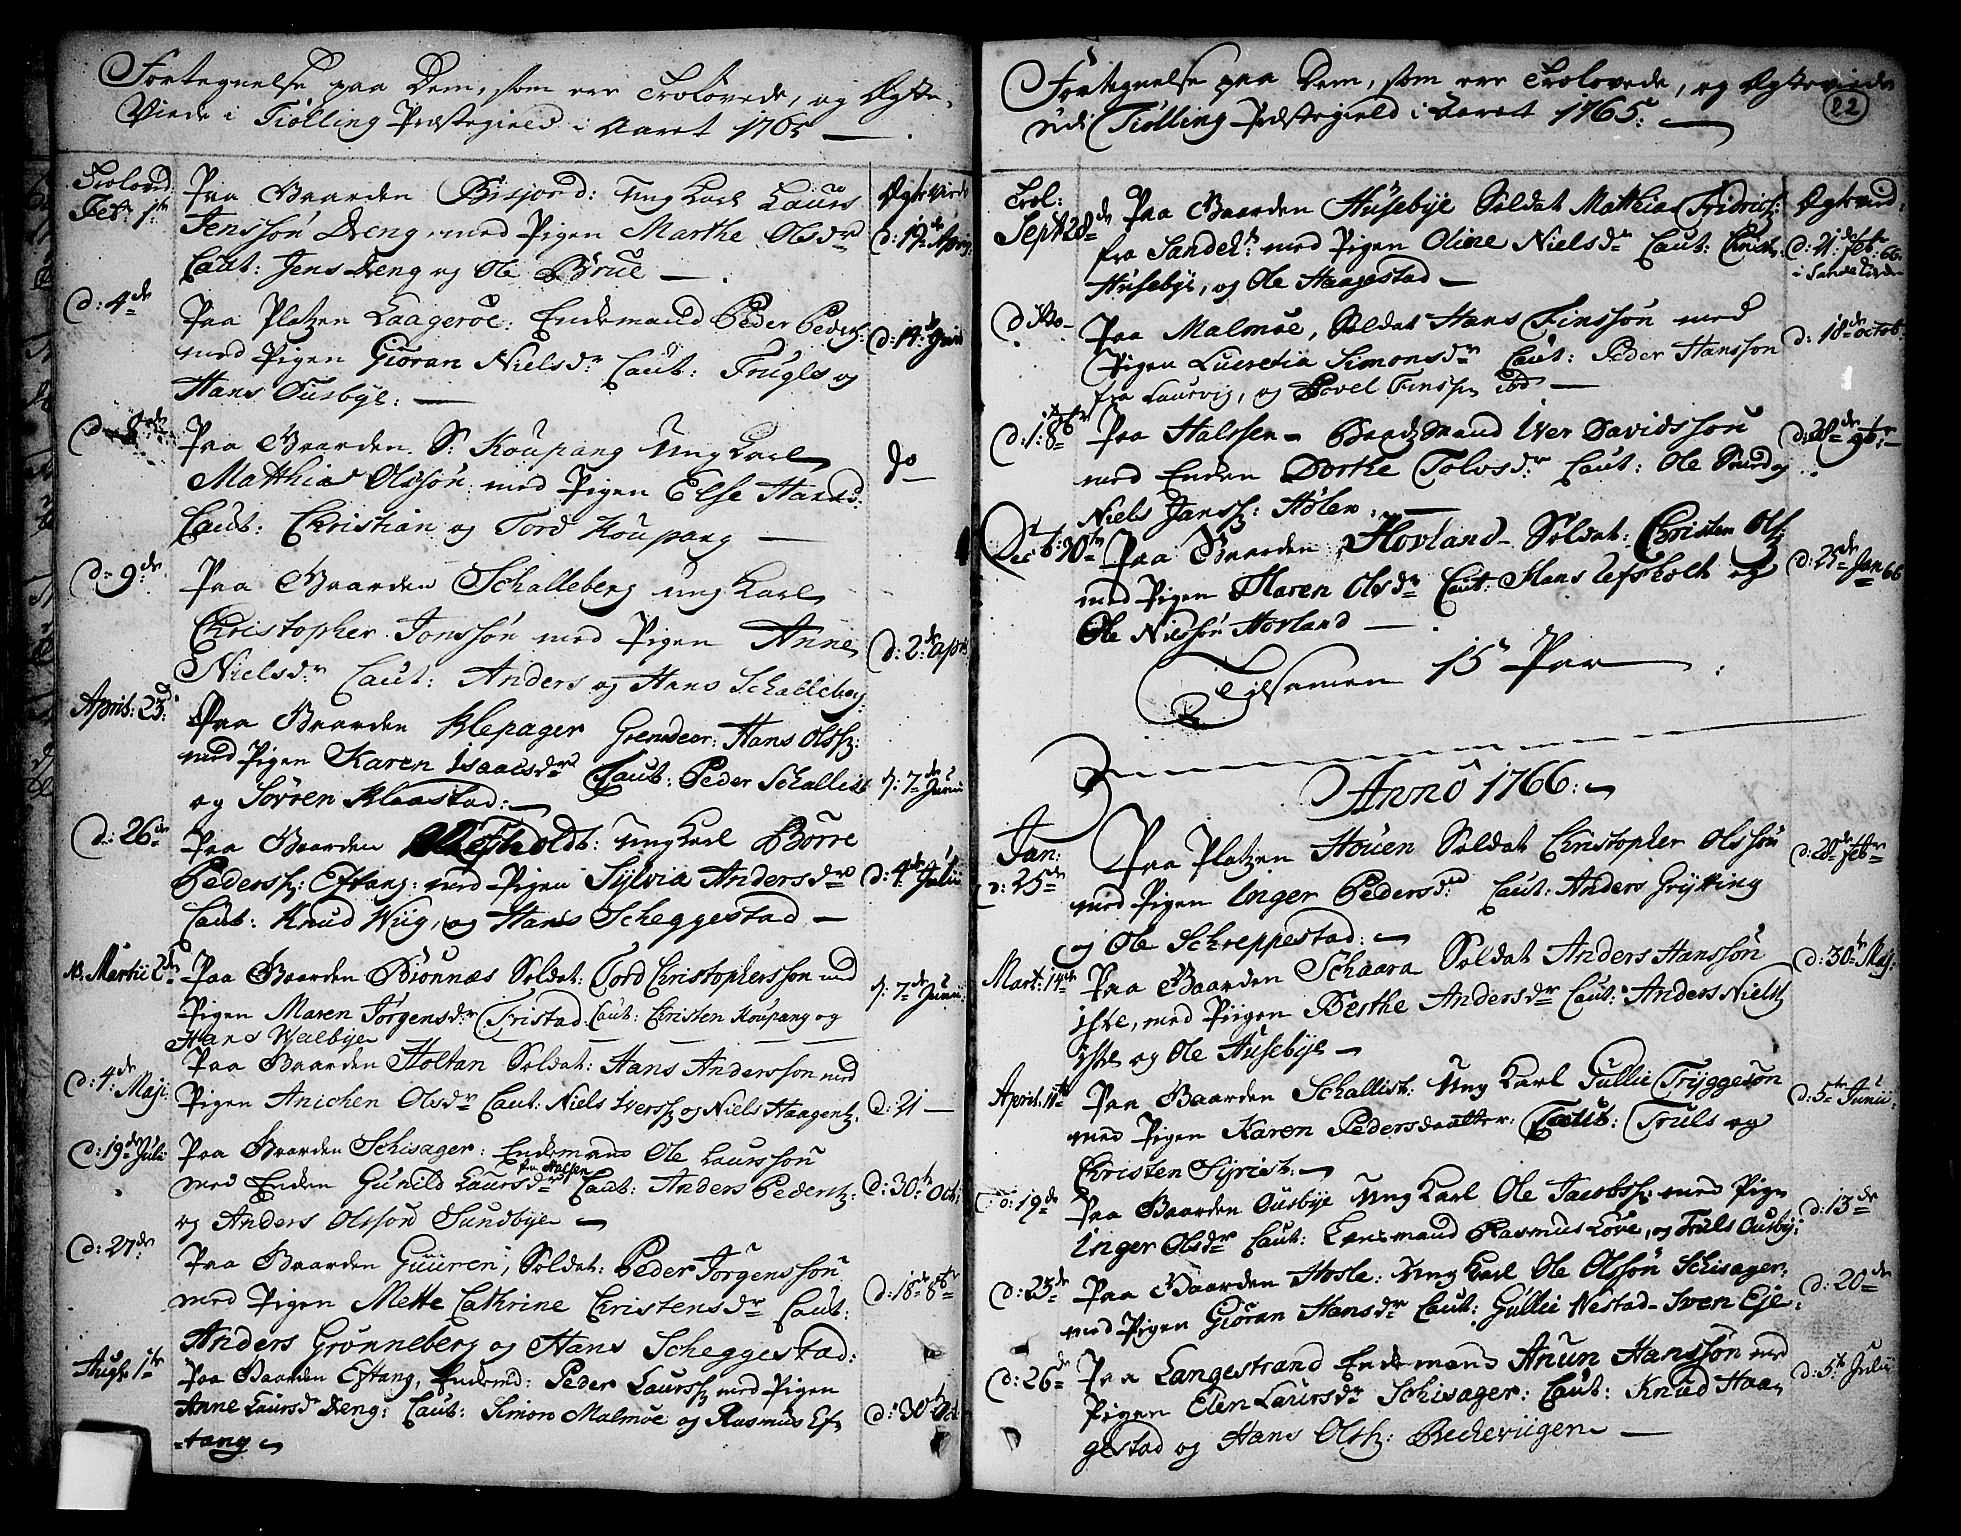 Fortegnelse paa Dem, som ere Trolovede, og Ægte-
Viede i Tiølling Præstegield i Aaret 1765
Trolovd:
Febr: 1te
Paa Gaarden Bisjord: Ung Karl Laurs
Jenssøn Dreng, med Pigen Marthe Olsdr
Caut: Jens Dreng og Ole Brue
Ægte Viede
d: 19de April
d: 4de
Paa Platzen Laagerøe: Enckemand Peder Peders:
med Pigen Giøran Nielsdr Caut: Trugls og
Hans Ousbye:
d: 14de Junii
Paa Gaarden S: Koupang Ung Karl
Matthias Olssøn med Pigen Else Hansd:
Caut: Christian og Tord Koupang
do
d: 9de
Paa Gaarden Schalleberg ung Karl
Christopher Jonssøn med Pigen Anne
Nielsdr Caut: Anders og Hans Schalleberg
d: 2de Apr:
April: 23d:
Paa Gaarden Klepager Grenadeer: Hans Olss:
med Pigen Karen Isaacsdr Caut: Peder Schallist
og Søvren Klaastad:
d: 7de Junii
d: 26de
Paa Gaarden Efsholdt: Ung Karl Børre
Pederss: Eftang: med Pigen Sylvia Andersdr
Caut: Knud Wiig, og Hans Scheggestad
d: 4de Julii
NB. Martii 2den
Paa Gaarden Biønnæs Soldat: Tord Christophersson med
Pigen Maren Jørgensdr Tristad Caut: Christen Koupang og
Hans Hvalbye
d: 7de Junii
d: 4de Maji
Paa Gaarden Holtan Soldat: Hans Andersson med
Pigen Anichen Olsdr Caut: Niels Iverss: og Niels Haagents:
d: 21
d: 19de Julii
Paa Gaarden Schisager: Enckemand Ole Laurssøn
fra Halsen
med Encken Gunild Laursdr Caut: Anders Pederss:
og Anders Olssøn Sundbye
d: 30te Oct:
d: 27de
Paa Gaarden Guuren, Soldat: Peder Jørgenssøn
med Pigen Mette Cathrine Christensdr Caut:
Anders Grønneberg og Hans Scheggestad:
d: 18de 8br
Augti 1te
Paa Gaarden Eftang, Enckemd: Peder Laurss: med Pigen
Anne Laursdr Dreng: Caut: Simon Malmøe og Rasmus Ef-
-tang
d: 30te Oct
Fortegnelse paa Dem, som ere Trolovede, og Ægteviede
udi Tiølling Præstegield i Aaret 1765:
22
Trol:
Sept: 28de
Paa Gaarden Husebye Soldat Mathias Fridrichs:
fra Sandeh: med Pigen Oline Nielsdr Caut:
Husebye, og Ole Haagestad
Ægteviede:
d: 21de Febr: 66
i Sandeherret
ditto
Paa Malmøe, Soldat Hans Finssøn med
Pigen Lucretia Simonsdr Caut: Peder Hansson
fra Laurvig, og Povel Finss: ibd
d: 18de octob:
d: 1te 8br
Paa Halssen Baadzmand Iver Davidssøn
med Encken Dorthe Tolvsdr Caut: Ole Smed og
Niels Janss: Hølen
d: 28de 9br
Decb: 30te
Paa Gaarden Hovland Soldat: Christen Ols:
med Pigen Maren Olsdr Caut: Hans Efsholt og
Ole Nielssøn Hovland
d: 25de Jan 66
Tilsamen 15 Par
Anno 1766:
Jan:
d: 25de
Paa Platzen Houen Soldat Christopher Olssøn
med Pigen Inger Pedersdr: Caut: Anders Gryting
og Ole Schreppestad:
d: 28de febr
Mart: 14de
Paa Gaarden Schaara Soldat Anders Hanssøn
ibd, med Pigen Berthe Andersdr Caut: Anders Niels:
ibd og Ole Husebye
d: 30te Maj:
April: 11te
Paa Gaarden Schallist: Ung Karl Gullie Tryggesøn
med Pigen Karen Pedersdaatter: Caut: Truls og
Christen Syrist:
d: 5te Junii:
d: 19de
Paa Gaarden Ousbye Ung Karl Ole Jacobss: med Pige
Inger Olsdr Caut: Lensmand Rasmus Love, og Truls Ousby:
d: 13de
d: 23de
Paa Gaarden Hosle: Ung Karl Ole Olssøn Schisager:
med Pigen Giøran Hansdr Caut: Gullie Nestad Sven Eje
d: 20de
d: 26de
Paa Langestrand Enckemand Anun Hanssøn med
Pigen Elen Laursdr Schisager: Caut: Knud Haa-
gestad og Hans Olss: Becheviigen
d: 5te Julii